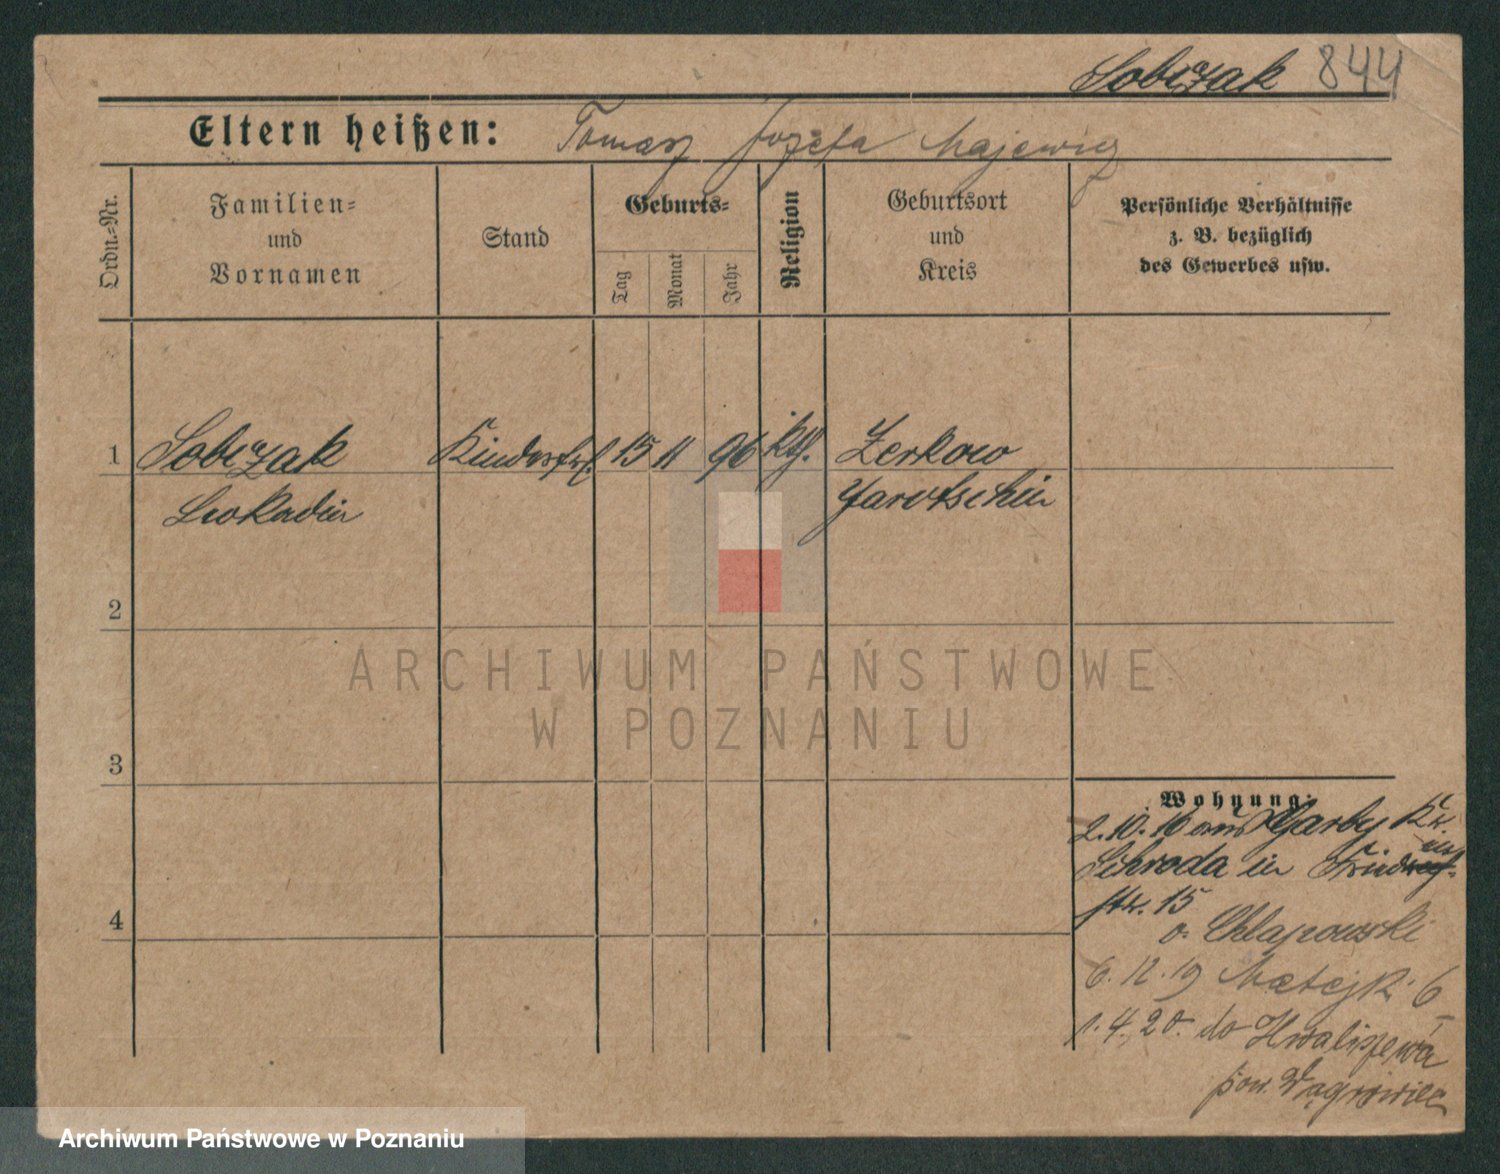 Sobczak 844
Eltern heißen: Tomasz Jozefa Majewicz
Ordn.-Nr.
Familien-
und
Vornamen
Stand
Geburts-
Tag
Monat
Jahr
Religion
Geburtsort
und
Kreis
Persönliche Verhältnisse
z. B. bezüglich
des Gewerbes usw.
1 Sobczak Kinderfrl. 15 11 96 kth. Zerkow
Leokadia Jarotschin
2
3
4
ARCHIWUM PAŃSTWOWE
W POZNANIU
Wohnung:
2.10.16 aus Garby Kr.
Schroda in
str. 15
v. Chlapowski
6.12.19 Matejki 6
1.4.20. do
pow. Wągrowiec
Archiwum Państwowe w Poznaniu